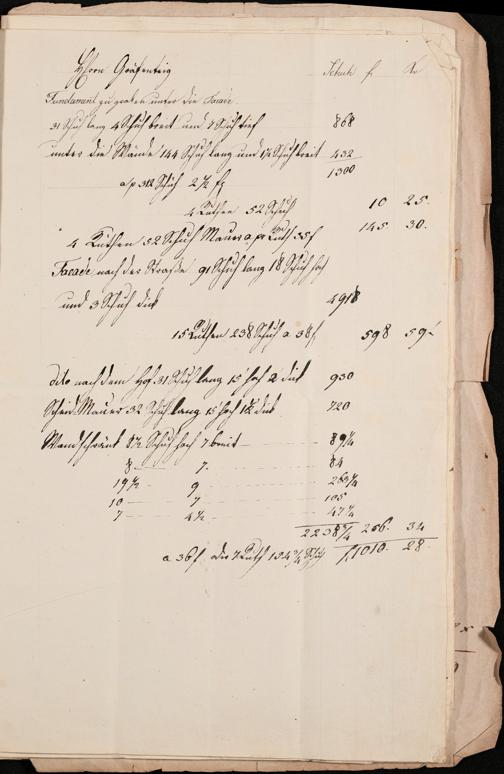 Herrn Gräfenteig Schuh f. Xr
Fundament zu graben unter die Facade
31 Schuh lang 4 Schuh breit und 7 Schuh tief 868
unter die Wände 144 Schuh lang und 1½ Schuh breit 432
1300
a/p 312 Schuh 2½ f
4 Ruthen 52 Schuh 10 25.
4 Ruthen 52 Schuh Mauer a pr Ruth 35 f 145. 30.
Facade nach der Straße 91 Schuh lang 18 Schuh hoch
und 3 Schuh dick 4918
15 Ruthen 238 Schuh a 38 f 598 59
dito nach dem Hof 31 Schuh lang 15' hoch 2 dick 930
Scheid Mauer 32 Schuh lang 15' hoch 1½ dick 720
Wandschränk 8½ Schuh hoch 7 breit 89¼
8 7. 84
19½ 9
10 7 105
7 4½ 47¼
2238¾ 256. 34
a 36 f. die 7 Ruth 134¾ Schuh f 1010. 28